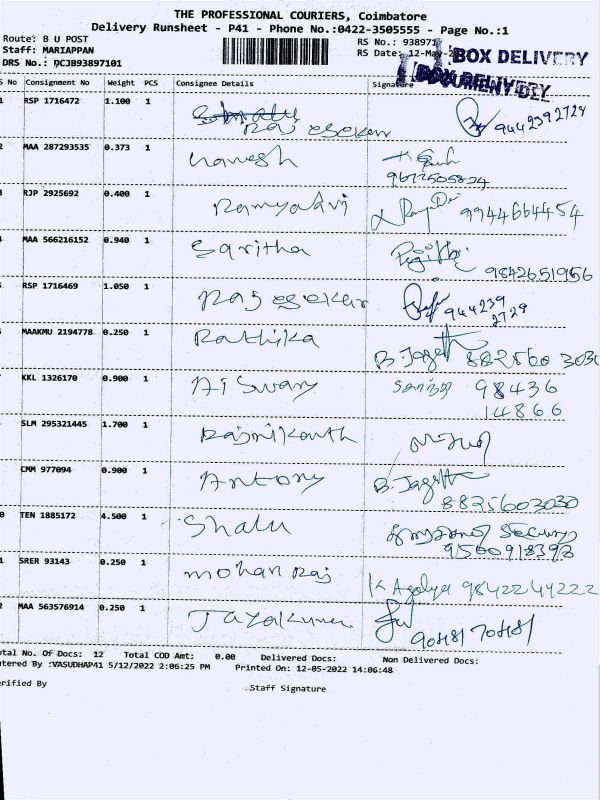 THE PROFESSIONAL COURIERS, Coimbatore
Delivery Runsheet - P41 - Phone No.:0422-3505555 - Page No.:1
Route: B U POST
RS No.: 938971
Staff: MARIAPPAN
RS Date: 12-May-2
DRS No.: QCJB93897101
BOX DELIVERY
BOX DELIVERY
DOCUMENT DLY
S No Consignment No Weight PCS Consignee Details Signature
1 RSP 1716472 1.100 1 Rajesekar 9442392729
2 MAA 287293535 0.373 1
3 RJP 2925692 0.400 1 Ramyadevi 9944664454
MAA 566216152 0.940 1 Saritha 9842651956
RSP 1716469 1.050 1 Rajesekar 944239
2729
MAAKMU 2194778 0.250 1 Rathika B. Jagath 882560 3030
KKL 1326170 0.900 1 Aiswary 98436
14866
SLM 295321445 1.700 1 Rajnikanth
CMM 977094 0.900 1 Antony B. Jagath
8825603030
0 TEN 1885172 4.500 1 Shalu Security
9560918393
1 SRER 93143 0.250 1 mohan Raj K Agalya 9842244222
2 MAA 563576914 0.250 1 Jayakumar
9048170481
otal No. Of Docs: 12 Total COD Amt: 0.00 Delivered Docs: Non Delivered Docs:
ntered By :VASUDHAP41 5/12/2022 2:06:25 PM Printed On: 12-05-2022 14:06:48
erified By
Staff Signature